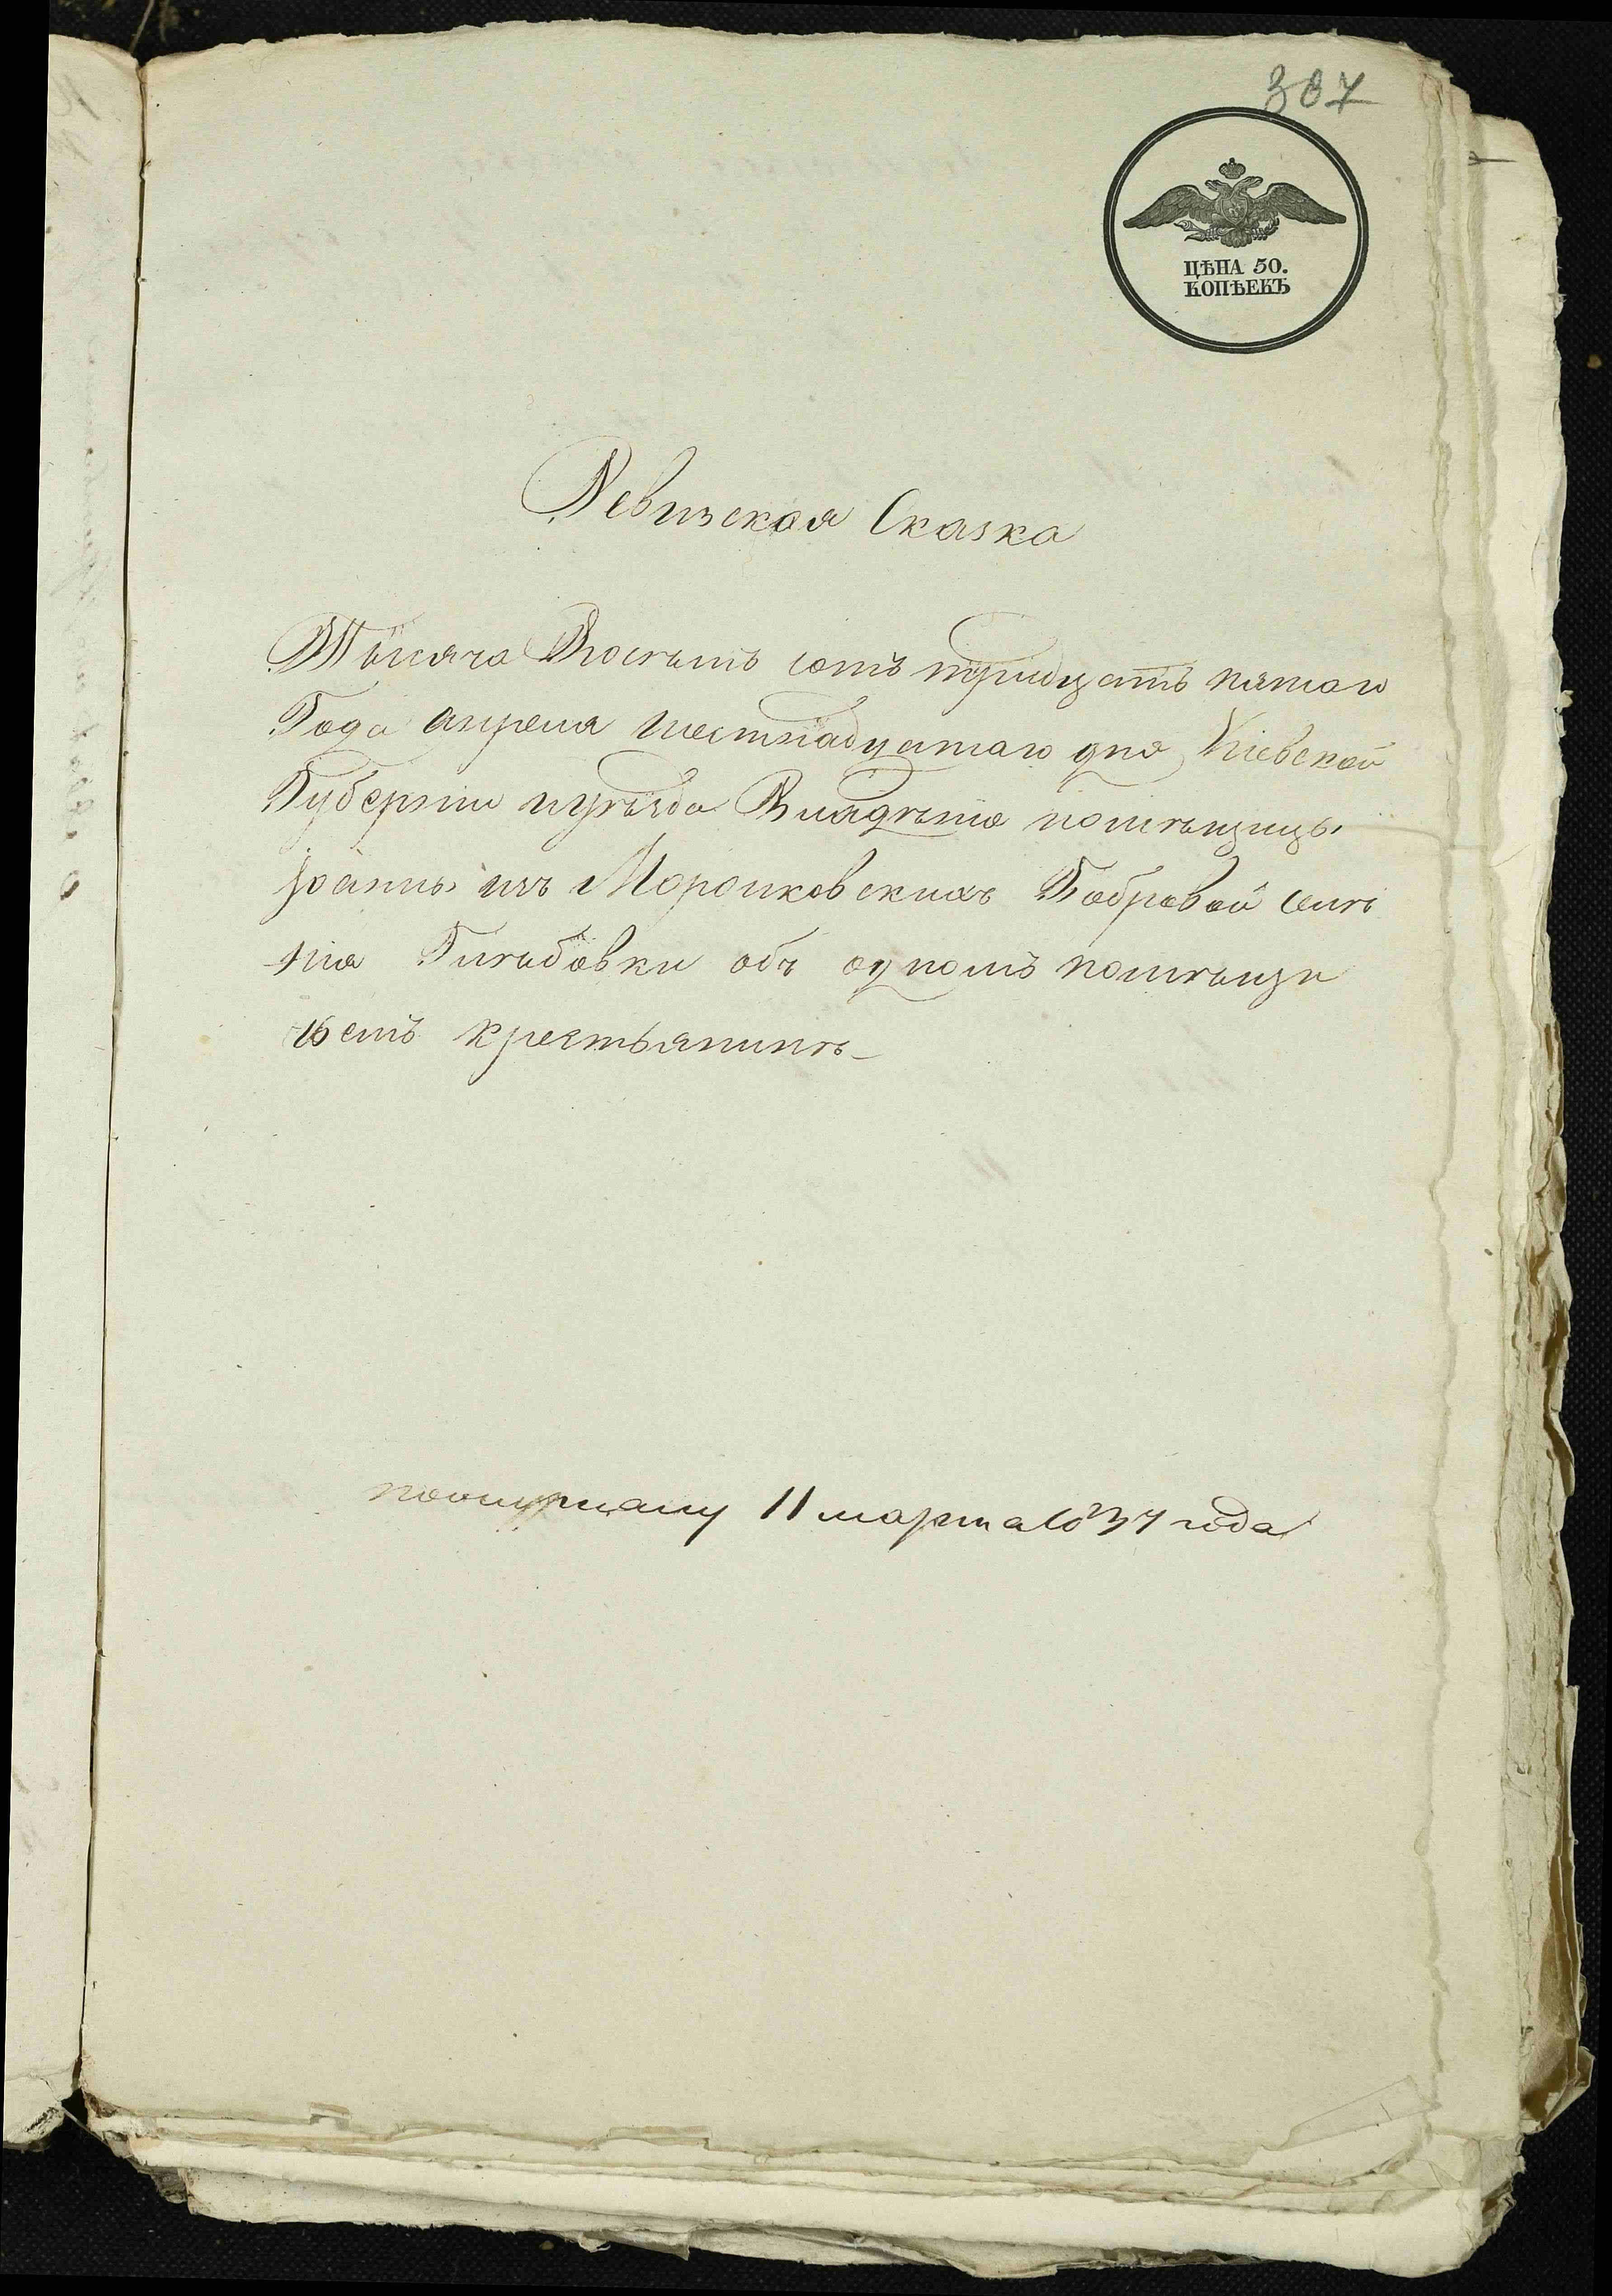 307
ЦѢНА 50.
КОПѢЕКЪ
Ревизская Сказка
Тысяча Восѣмъ сотъ тридцать пятого
Года апреля шестнадцатаго дня Кіевской
Губерніи и уѣзда Владѣнія помѣщицы
Іоанны изъ Моропковскихъ Бобровой селѣ
нія Глѣбовки объ одномъ помѣщи
чемъ крестьянинѣ
11 марта 1837 года